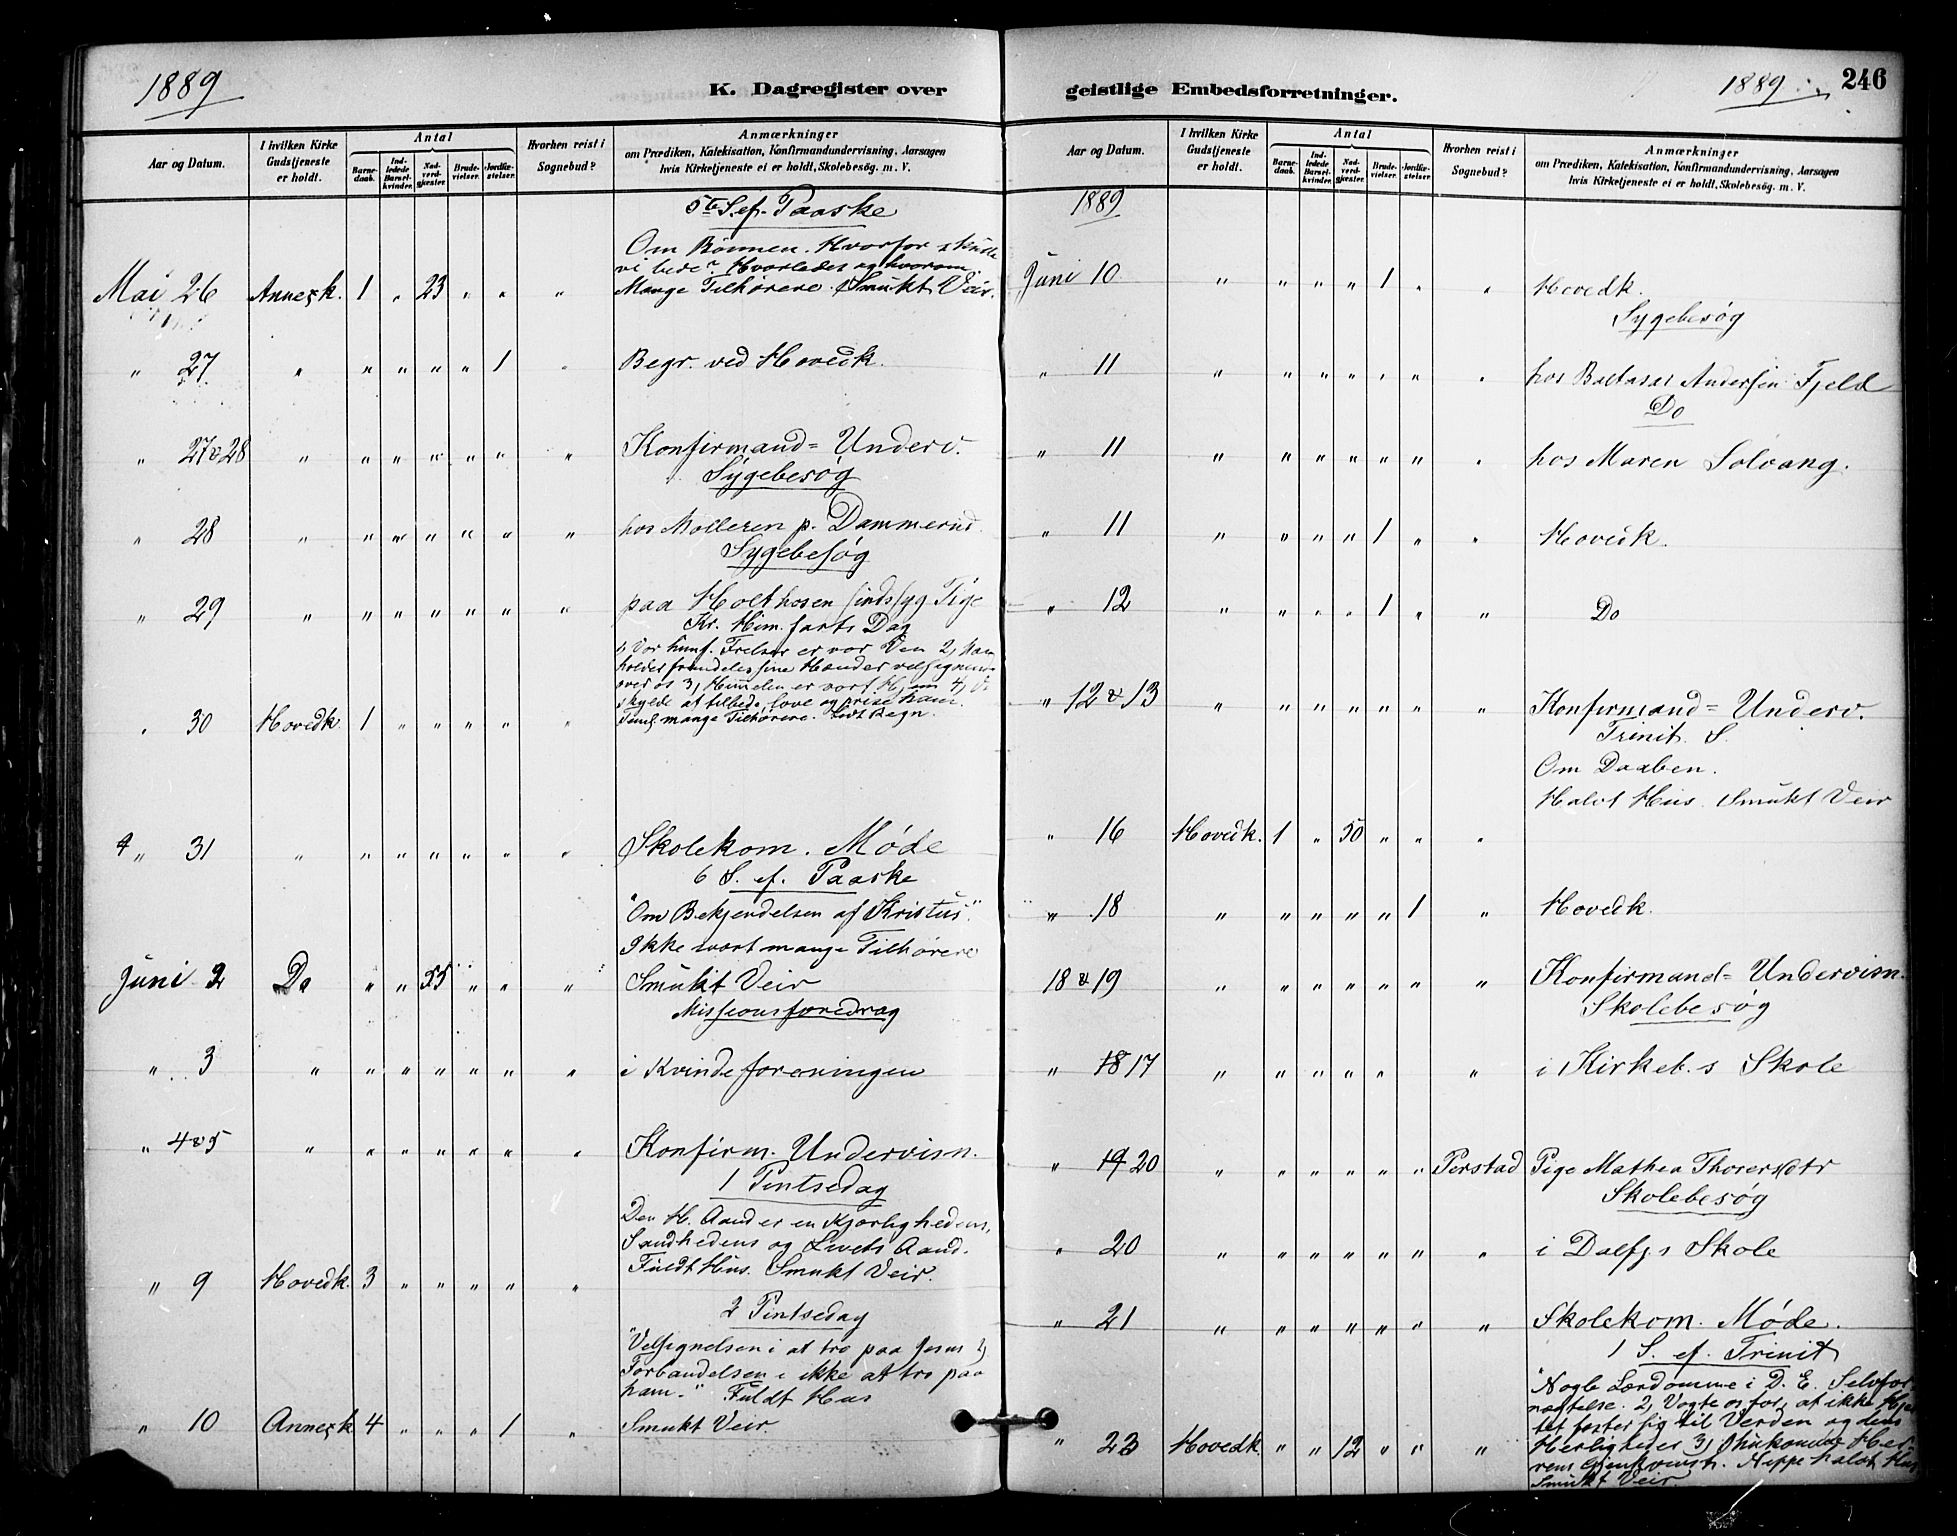 1889
K. Dagregister over
Aar og Datum.
I hvilken Kirke Gudstjeneste er holdt.
Antal
Barnedaab.
Indledede Barselkvinder.
Nadverdgjester.
Brudevielser.
Jordfæstelser.
Hvorhen reist i Sognebud?
Anmærkninger
om Prædiken, Katekisation, Konfirmandundervisning, Aarsagen
hvis Kirketjeneste ei er holdt, Skolebesøg. m. V.
5te S. ef. Paaske
Om Bønnen. Hvorfor skulle
vi bede? Hvorledes og hvorom.
Mai 26 Annexk. 1 " 23 " " " Mange Tilhørere. Smukt Veir.
" 27 " " " " " 1 " Begr. ved Hovedk.
" 27 & 28 " " " " " " " Konfirmand= Underv.
Sygebesøg
" 28 " " " " " " " hos Mølleren p. Dammerud.
Sygebesøg
" 29 " " " " " " " paa Holthosen sindssyg Pige
Kr. Him. farts Dag
1, Vor himl. Frelser er vor Ven 2, han
holder fremdeles sine Hænder velsignende
over os 3, Himelen er vort Hjem 4, Vi
skylde at tilbede, love og prise ham.
" 30 Hovedk. 1 " " " " " Teml. mange Tilhørere. Lidt Regn.
" 31 " " " " " " " Skolekom. Møde
6 S. ef. Paaske
"Om Bekjendelsen af Kristus."
Ikke svært mange Tilhørere
Juni 2 Do " " 55 " " " Smukt Veir
Missionsforedrag
" 3 " " " " " " " i Kvindeforeningen
" 4 & 5 " " " " " " " Konfirm. Undervisn.
1 Pintsedag
Den H. Aand er en Kjærlighedens,
Sandhedens og Livets Aand.
" 9 Hovedk. 3 " " " " " Fuldt Hus. Smukt Veir.
2 Pintsedag
"Velsignelsen i at tro paa Jesus 2,
Forbandelsen i ikke at tro paa
ham." Fuldt Hus
" 10 Annexk 4 " " " 1 " Smukt Veir.
geistlige Embedsforretninger.
1889
246
Aar og Datum.
I hvilken Kirke Gudstjeneste er holdt.
Antal
Barnedaab.
Indledede Barselkvinder.
Nadverdgjester.
Brudevielser.
Jordfæstelser.
Hvorhen reist i Sognebud?
Anmærkninger
om Prædiken, Katekisation, Konfirmandundervisning, Aarsagen
hvis Kirketjeneste ei er holdt, Skolebesøg. m. V.
1889
Juni 10 " " " " 1 " " Hovedk.
Sygebesøg
" 11 " " " " " " " hos Baltasar Andersen Fjeld
Do
" 11 " " " " " " " hos Maren Solvang.
" 11 " " " " 1 " " Hovedk.
" 12 " " " " 1 " " Do
" 12 & 13 " " " " " " " Konfirmand= Underv.
Trinit. S.
Om Daaben.
Halvt Hus. Smukt Veir
" 16 Hovedk. 1 " 50 " " "
" 18 " " " " " 1 " Hovedk.
18 & 19 " " " " " " " Konfirmand= Undervisn.
Skolebesøg
" 18 17 " " " " " " i Kirkeb.s Skole
" 19 20 " " " " " " Perstad Pige Mathea Thorersdtr
Skolebesøg
" 20 " " " " " " " i Dalfj s Skole
" 21 " " " " " " " Skolekom. Møde.
1 S. ef. Trinit
"Nogle Lærdomme i D. E. Selvfor
nægtelse. 2, Vogte os for, at ikke Hjer
tet fæster sig til Verden og dens
" 23 Hovedk. " " 12 " " " Herligheder 3, Ihukomme Her-
rens Neppe halvt Hus
Smukt Veir.